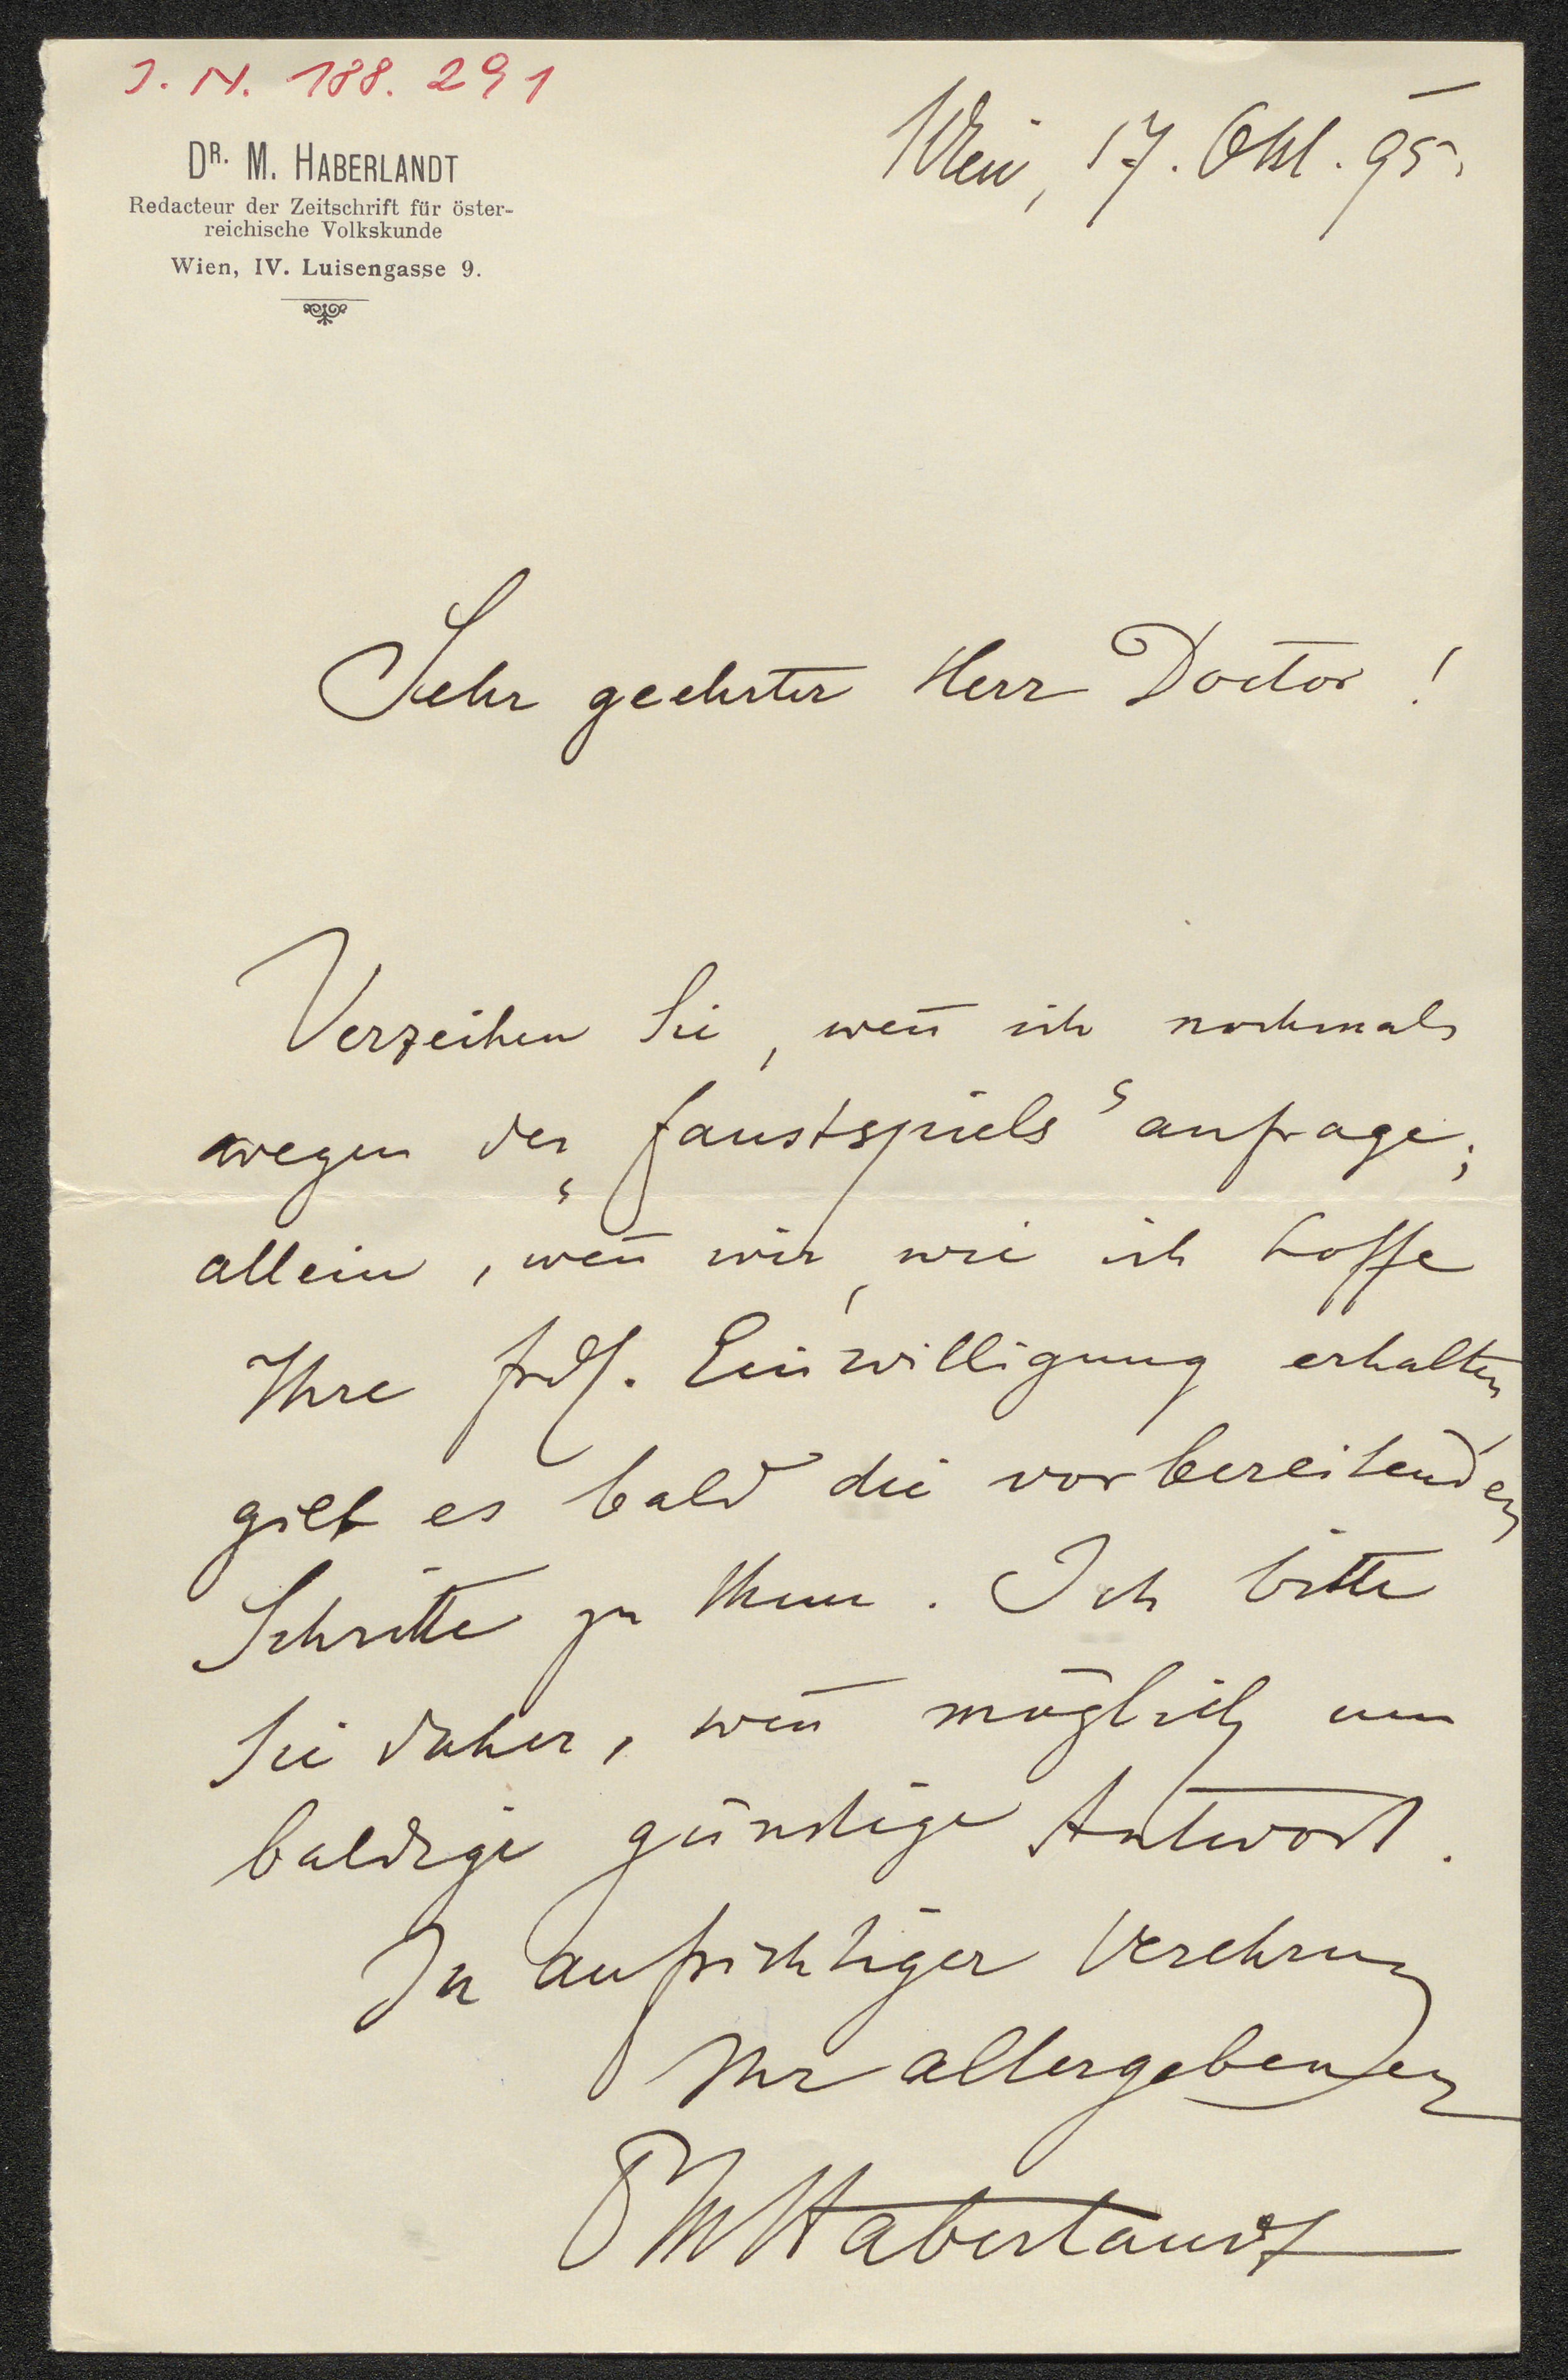 J. N. 188. 291
DR. M. HABERLANDT
Redacteur der Zeitschrift für öster-
reichische Volkskunde
Wien, IV. Luisengasse 9.
Wien, 17. Okt. 95.
Sehr geehrter Herr Doctor!
Verzeihen Sie, weñ ich nochmals
wegen des „Faustspiels“ anfrage;
allein, weñ wir, wie ich hoffe
Ihre frdl. Einwilligung erhalten,
gilt es bald die vorbereitenden
Schritte zu thun. Ich bitte
Sie daher, weñ möglich um
baldige günstige Antwort.
In aufrichtiger Verehrung
Ihr allergebenster
Dr M Haberlandt